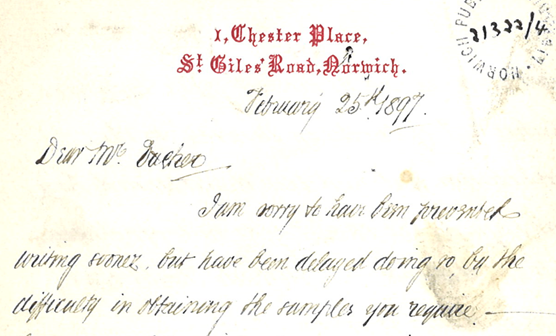 1, Chester Place,
St Giles' Road, Norwich.
February 25th 1897.
Dear Mr
I am sorry to have been prevented
writing sooner, but have been delayed doing so, by the
difficulty in obtaining the samples you require. —
NORWICH PUB
21322/4